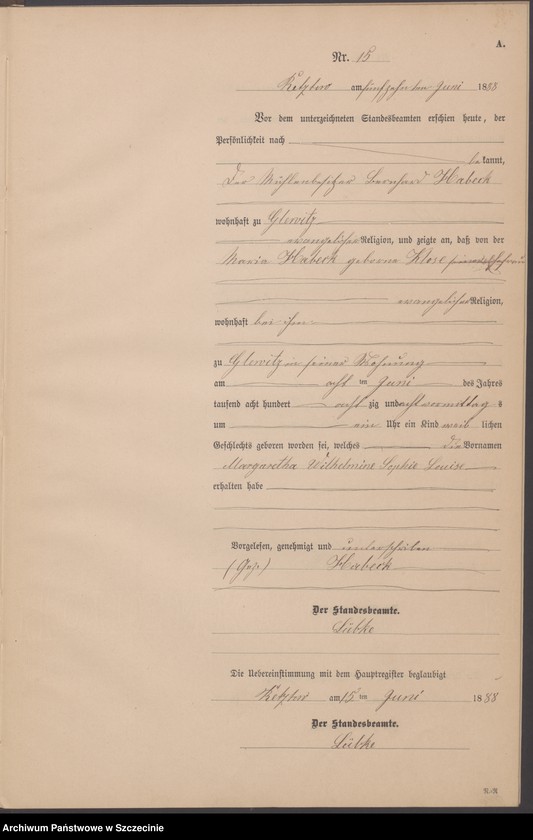 A.
Nr. 15
am fünfzehnten Juni 1888
Vor dem unterzeichneten Standesbeamten erschien heute, der
Persönlichkeit nach
bekannt,
Der Mühlenbesitzer Bernhard Habeck
wohnhaft zu Glewitz
evangelischer Religion, und zeigte an, daß von der
Maria Habeck geborne Klose seiner Ehefrau
evangelischer Religion,
wohnhaft bei ihm
zu Glewitz in seiner Wohnung
am acht ten Juni des Jahres
tausend acht hundert acht zig und acht vormittag s
um ein Uhr ein Kind weib lichen
Geschlechts geboren worden sei, welches die Vornamen
Margaretha Wilhelmine Sophie Louise
erhalten habe
Vorgelesen, genehmigt und unterschrieben
(Gez.) Habeck
Der Standesbeamte.
Lübke
Die Uebereinstimmung mit dem Hauptregister beglaubigt
am 15 ten Juni 1888
Der Standesbeamte.
Lübke
Archiwum Państwowe w Szczecinie